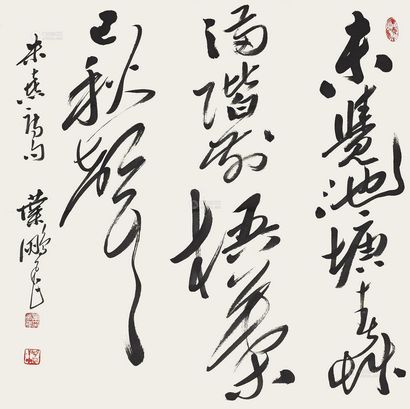 未覺池塘春草
夢階前梧葉
已秋聲
朱熹詩句 葉鵬飛